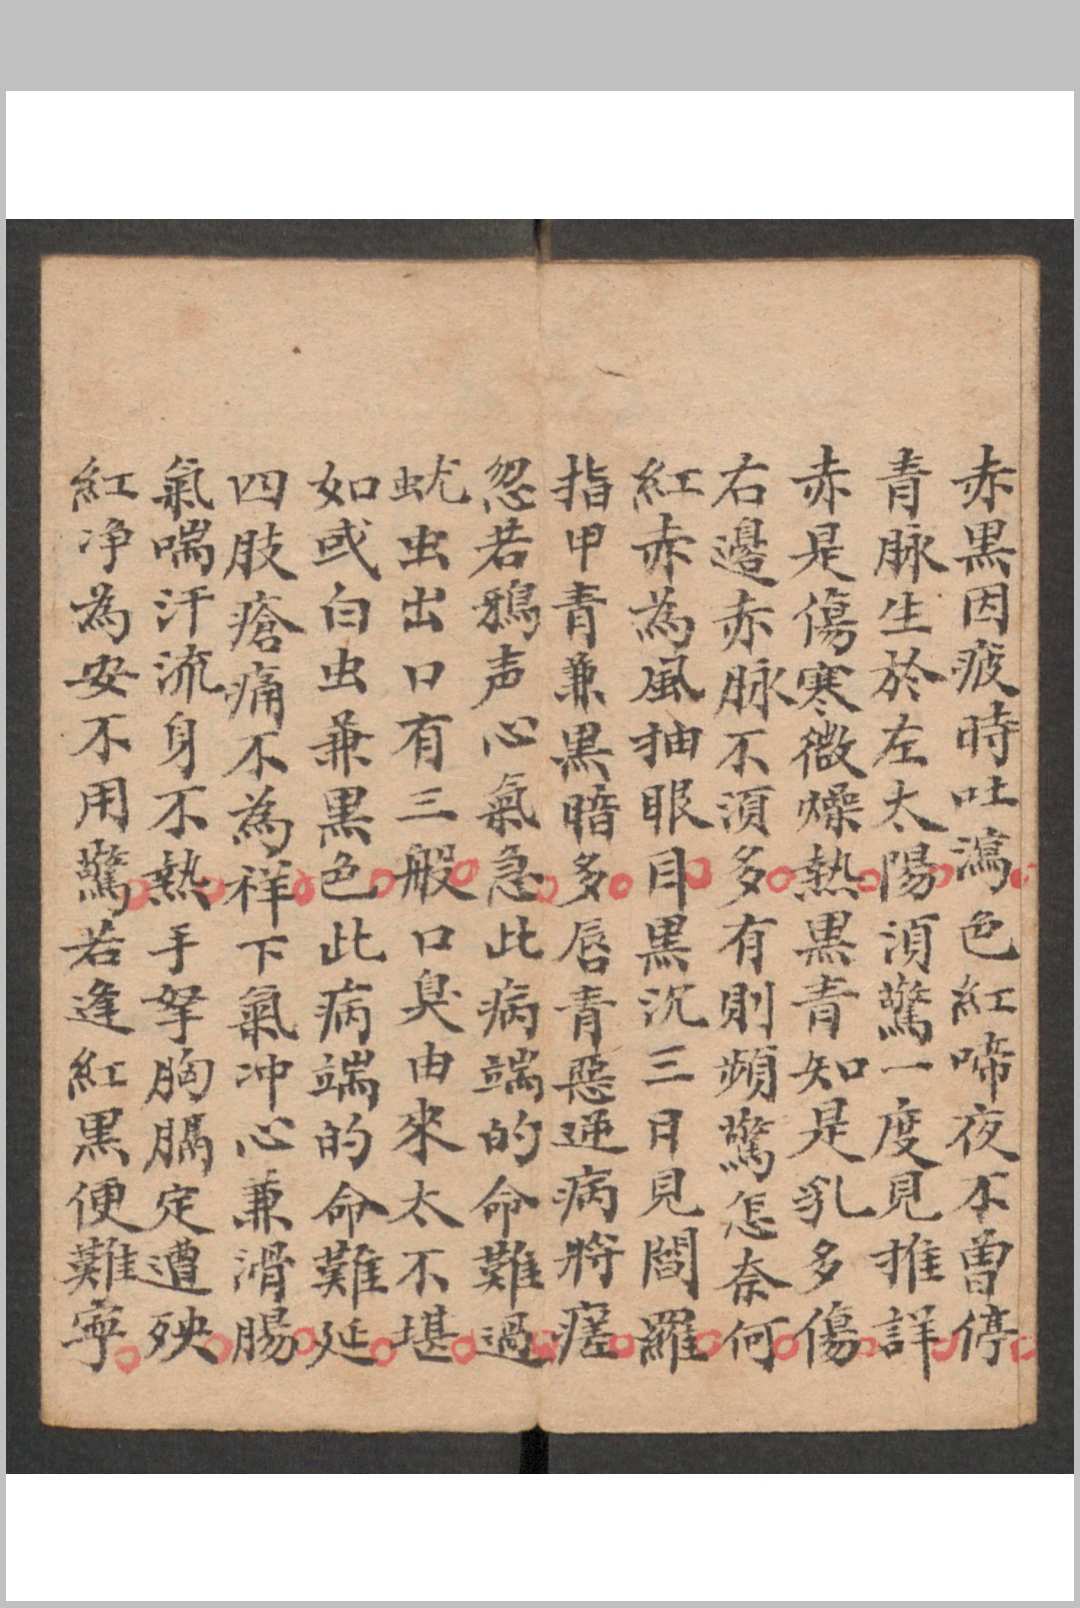 赤黒因疲時吐瀉色紅啼夜不曽停
青脉生於左太陽湏驚一度見推詳
赤是傷寒微燥熱黒青知是乳多傷
右邉赤脉不湏多有則頻驚怎奈何
紅赤為風抽眼目黒沉三日見閻羅
指甲青兼黒暗多唇青惡逆病将瘥
忽若鴉声心氣急此病端的命難過
蚘虫出口有三般口臭由來太不堪
如或白虫兼黒色此病端的命難延
四肢瘡痛不為祥下氣冲心兼滑腸
氣喘汗流身不熱手拏胸膈定遭殃
紅浄為安不用驚若逢紅黒便難寧